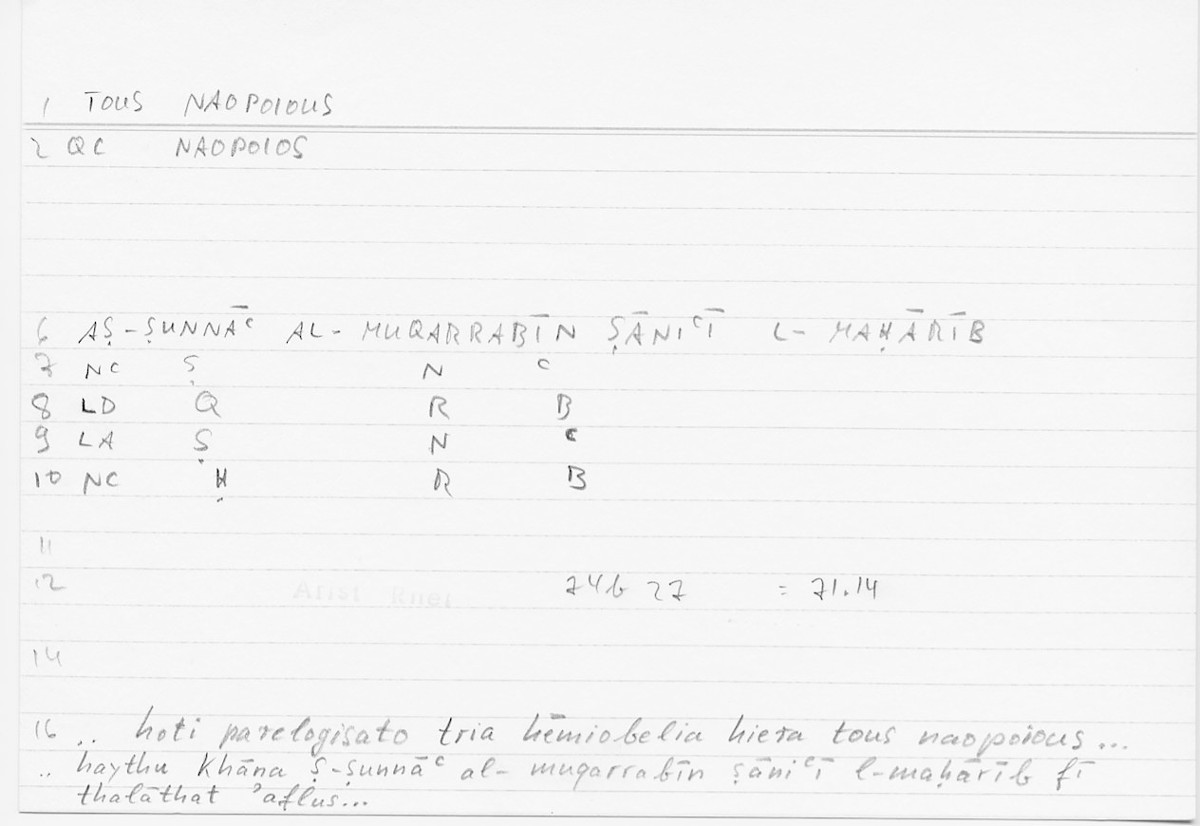 1 TOUS NAOPOIOUS
2 QC NAOPOIOS
6 AṢ-ṢUNNĀᶜ AL-MUQARRABĪN ṢĀNIᶜĪ L-MAḤĀRĪB
7 NC Ṣ N ᶜ
8 LD Q R B
9 LA Ṣ N ᶜ
10 NC Ḥ R B
11
12 Arist Rhet 74b 27 = 71.14
14
16 .. hoti parelogisato tria hēmiobelia hiera tous naopoious...
.. haythu khāna ṣ-ṣunnāᶜ al-muqarrabīn ṣāniᶜī l-maḥārīb fī
thalāthat ʾaflus...